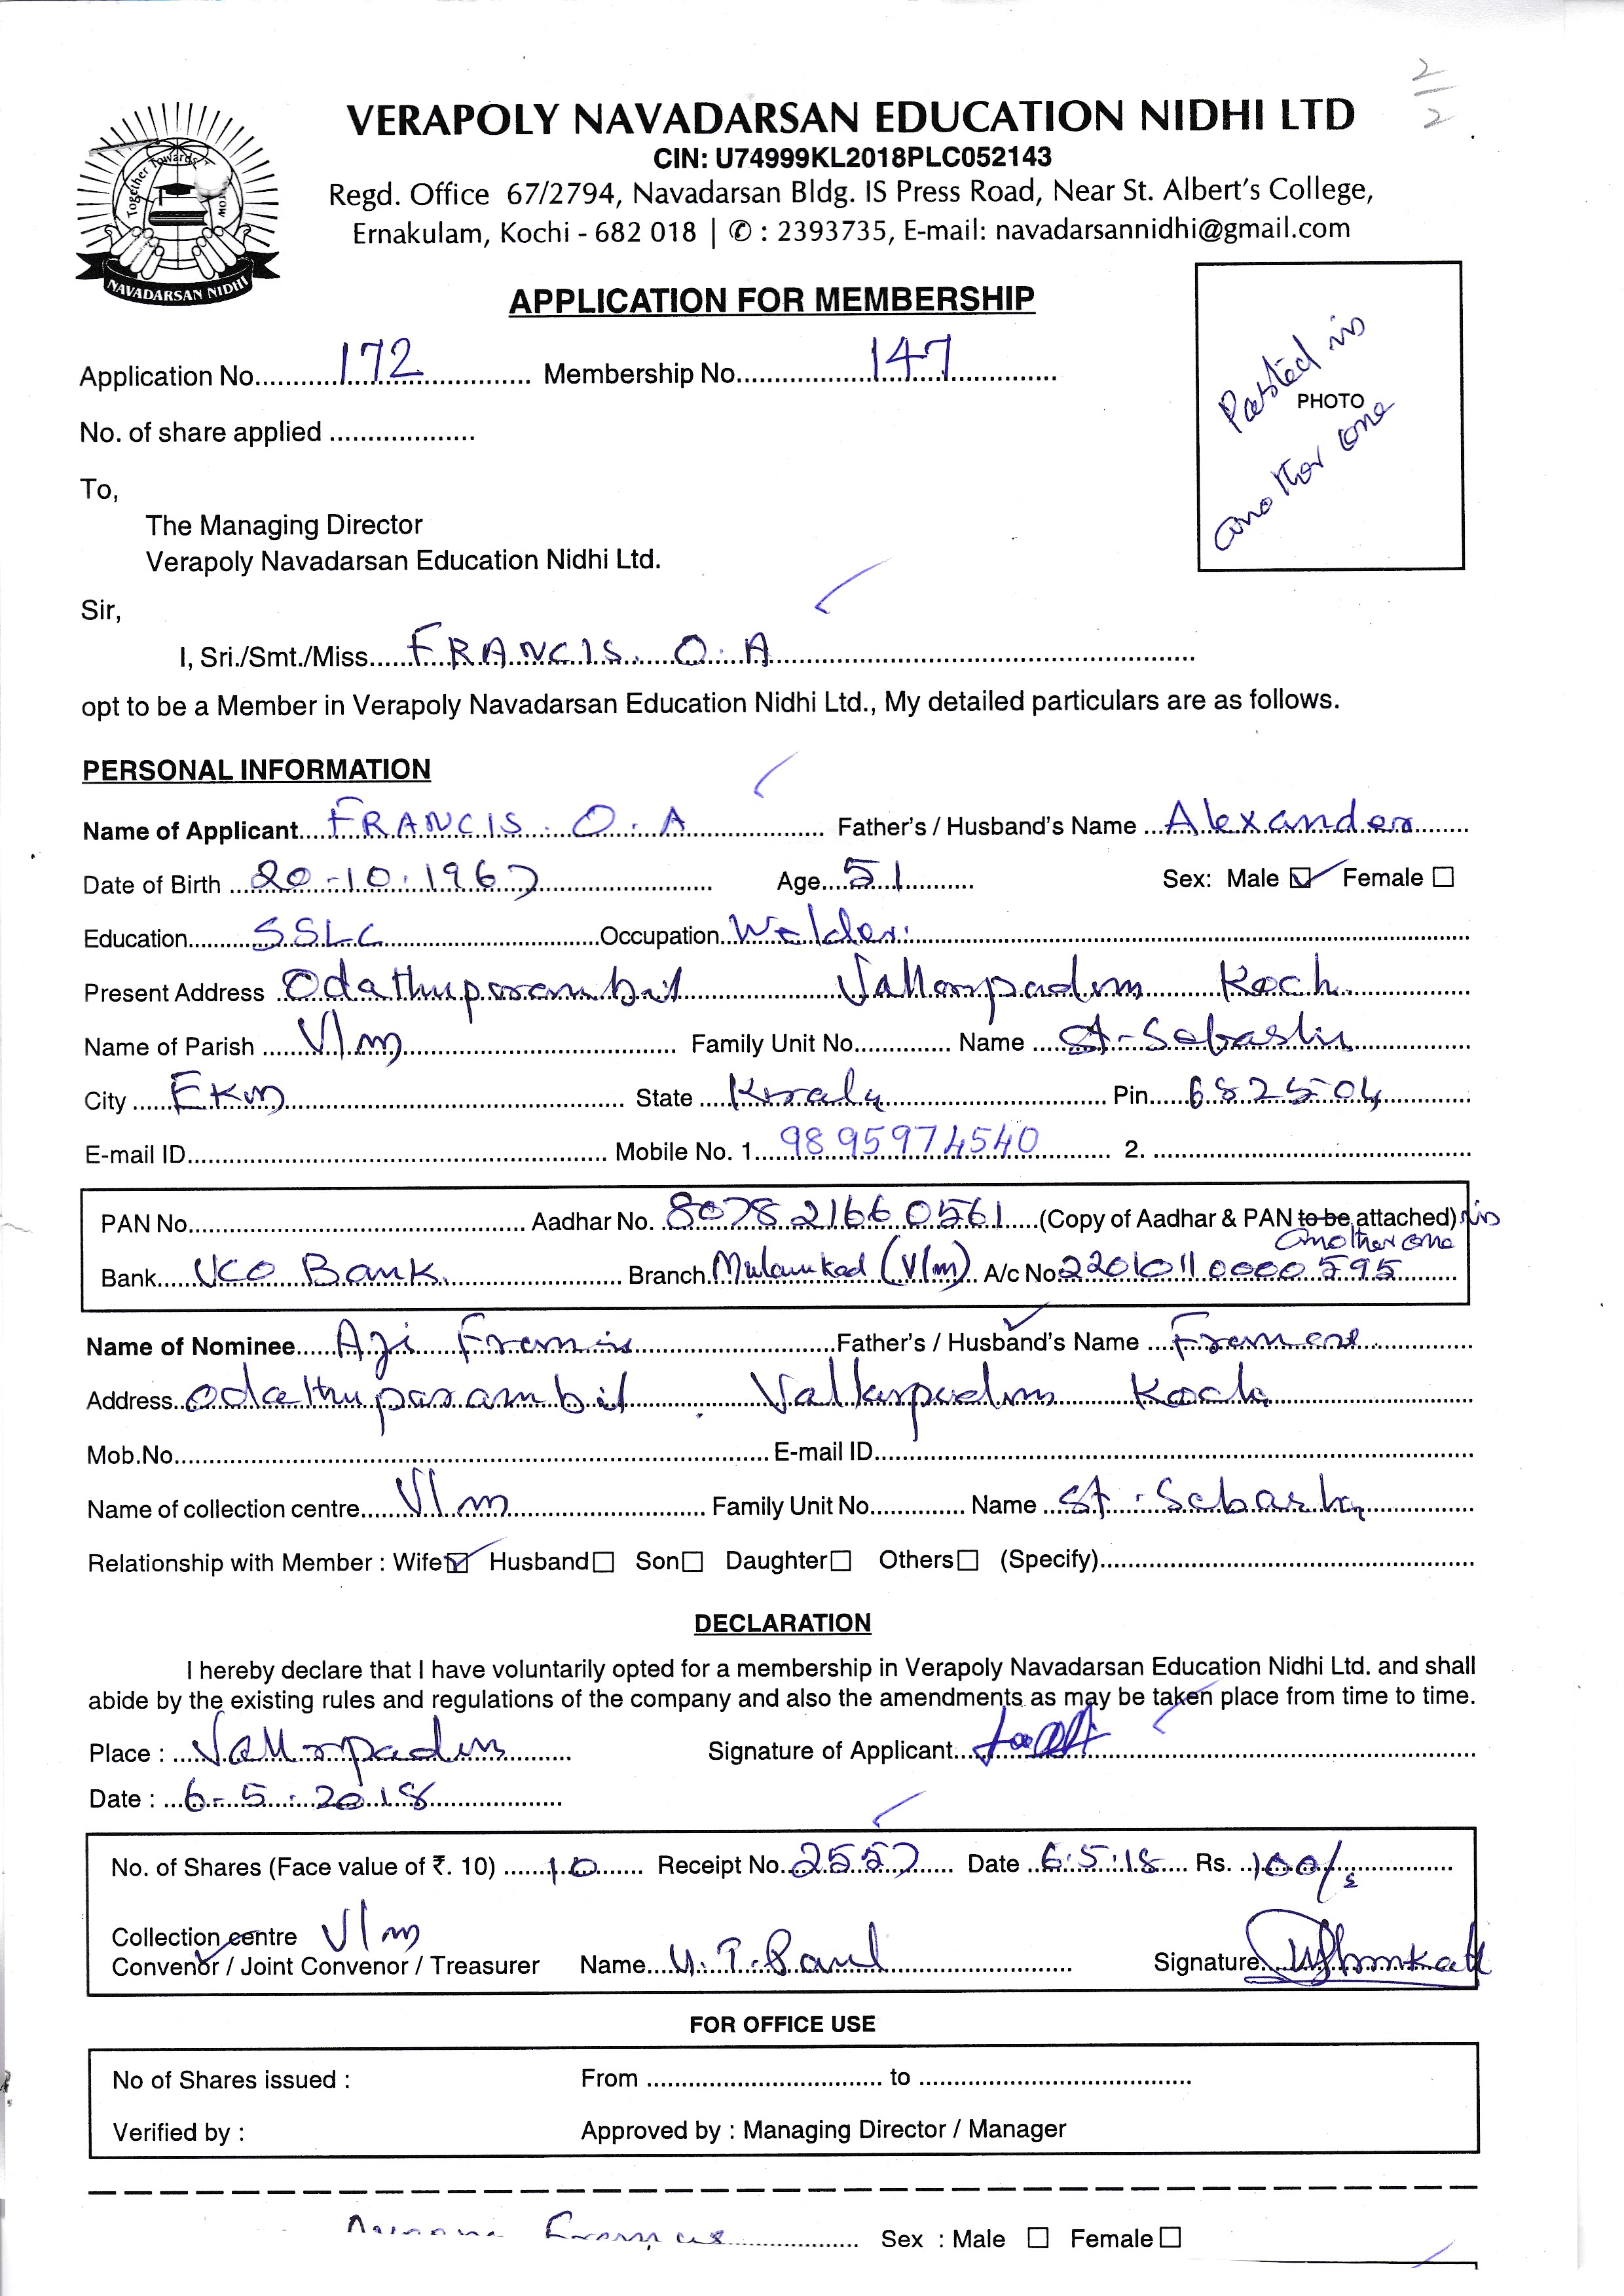 2
2
VERAPOLY NAVADARSAN EDUCATION NIDHI LTD
CIN: U74999KL2018PLC052143
Regd. Office 67/2794, Navadarsan Bldg. IS Press Road, Near St. Albert's College,
Ernakulam, Kochi - 682 018 | ✆ : 2393735, E-mail: navadarsannidhi@gmail.com
Together Towards
NAVADARSAN NIDHI
APPLICATION FOR MEMBERSHIP
Pasted in
PHOTO
another one
Application No. 172 Membership No. 147
No. of share applied
To,
The Managing Director
Verapoly Navadarsan Education Nidhi Ltd.
Sir,
I, Sri./Smt./Miss. FRANCIS. O. A
opt to be a Member in Verapoly Navadarsan Education Nidhi Ltd., My detailed particulars are as follows.
PERSONAL INFORMATION
Name of Applicant FRANCIS. O. A Father's / Husband's Name Alexander
Date of Birth 20-10.1967 Age 51 Sex: Male ☑ Female ☐
Education SSLC Occupation Welder
Present Address Odathuparambil Vallarpadm Koch
Name of Parish Vlm Family Unit No. Name St-Sebastin
City Ekm State Kerala Pin 682504
E-mail ID Mobile No. 1. 9895974540 2.
PAN No. Aadhar No. 8078 2166 0561 (Copy of Aadhar & PAN to be attached) in
another one
Bank UCO Bank Branch Mulavukad (Vlm) A/c No 22010110000595
Name of Nominee Aji Francis Father's / Husband's Name Francis
Address Odathuparambil Vallarpadm Koch
Mob.No. E-mail ID
Name of collection centre Vlm Family Unit No. Name St. Sebastin
Relationship with Member : Wife ☑ Husband ☐ Son ☐ Daughter ☐ Others ☐ (Specify)
DECLARATION
I hereby declare that I have voluntarily opted for a membership in Verapoly Navadarsan Education Nidhi Ltd. and shall
abide by the existing rules and regulations of the company and also the amendments as may be taken place from time to time.
Place : Vallarpadm Signature of Applicant
Date : 6-5-2018
No. of Shares (Face value of ₹. 10) 10 Receipt No. 2557 Date 6.5.18 Rs. 100/-
Collection centre Vlm
Convenor / Joint Convenor / Treasurer Name U. T. Paul Signature
FOR OFFICE USE
No of Shares issued : From to
Verified by : Approved by : Managing Director / Manager
Francis Sex : Male ☐ Female ☐